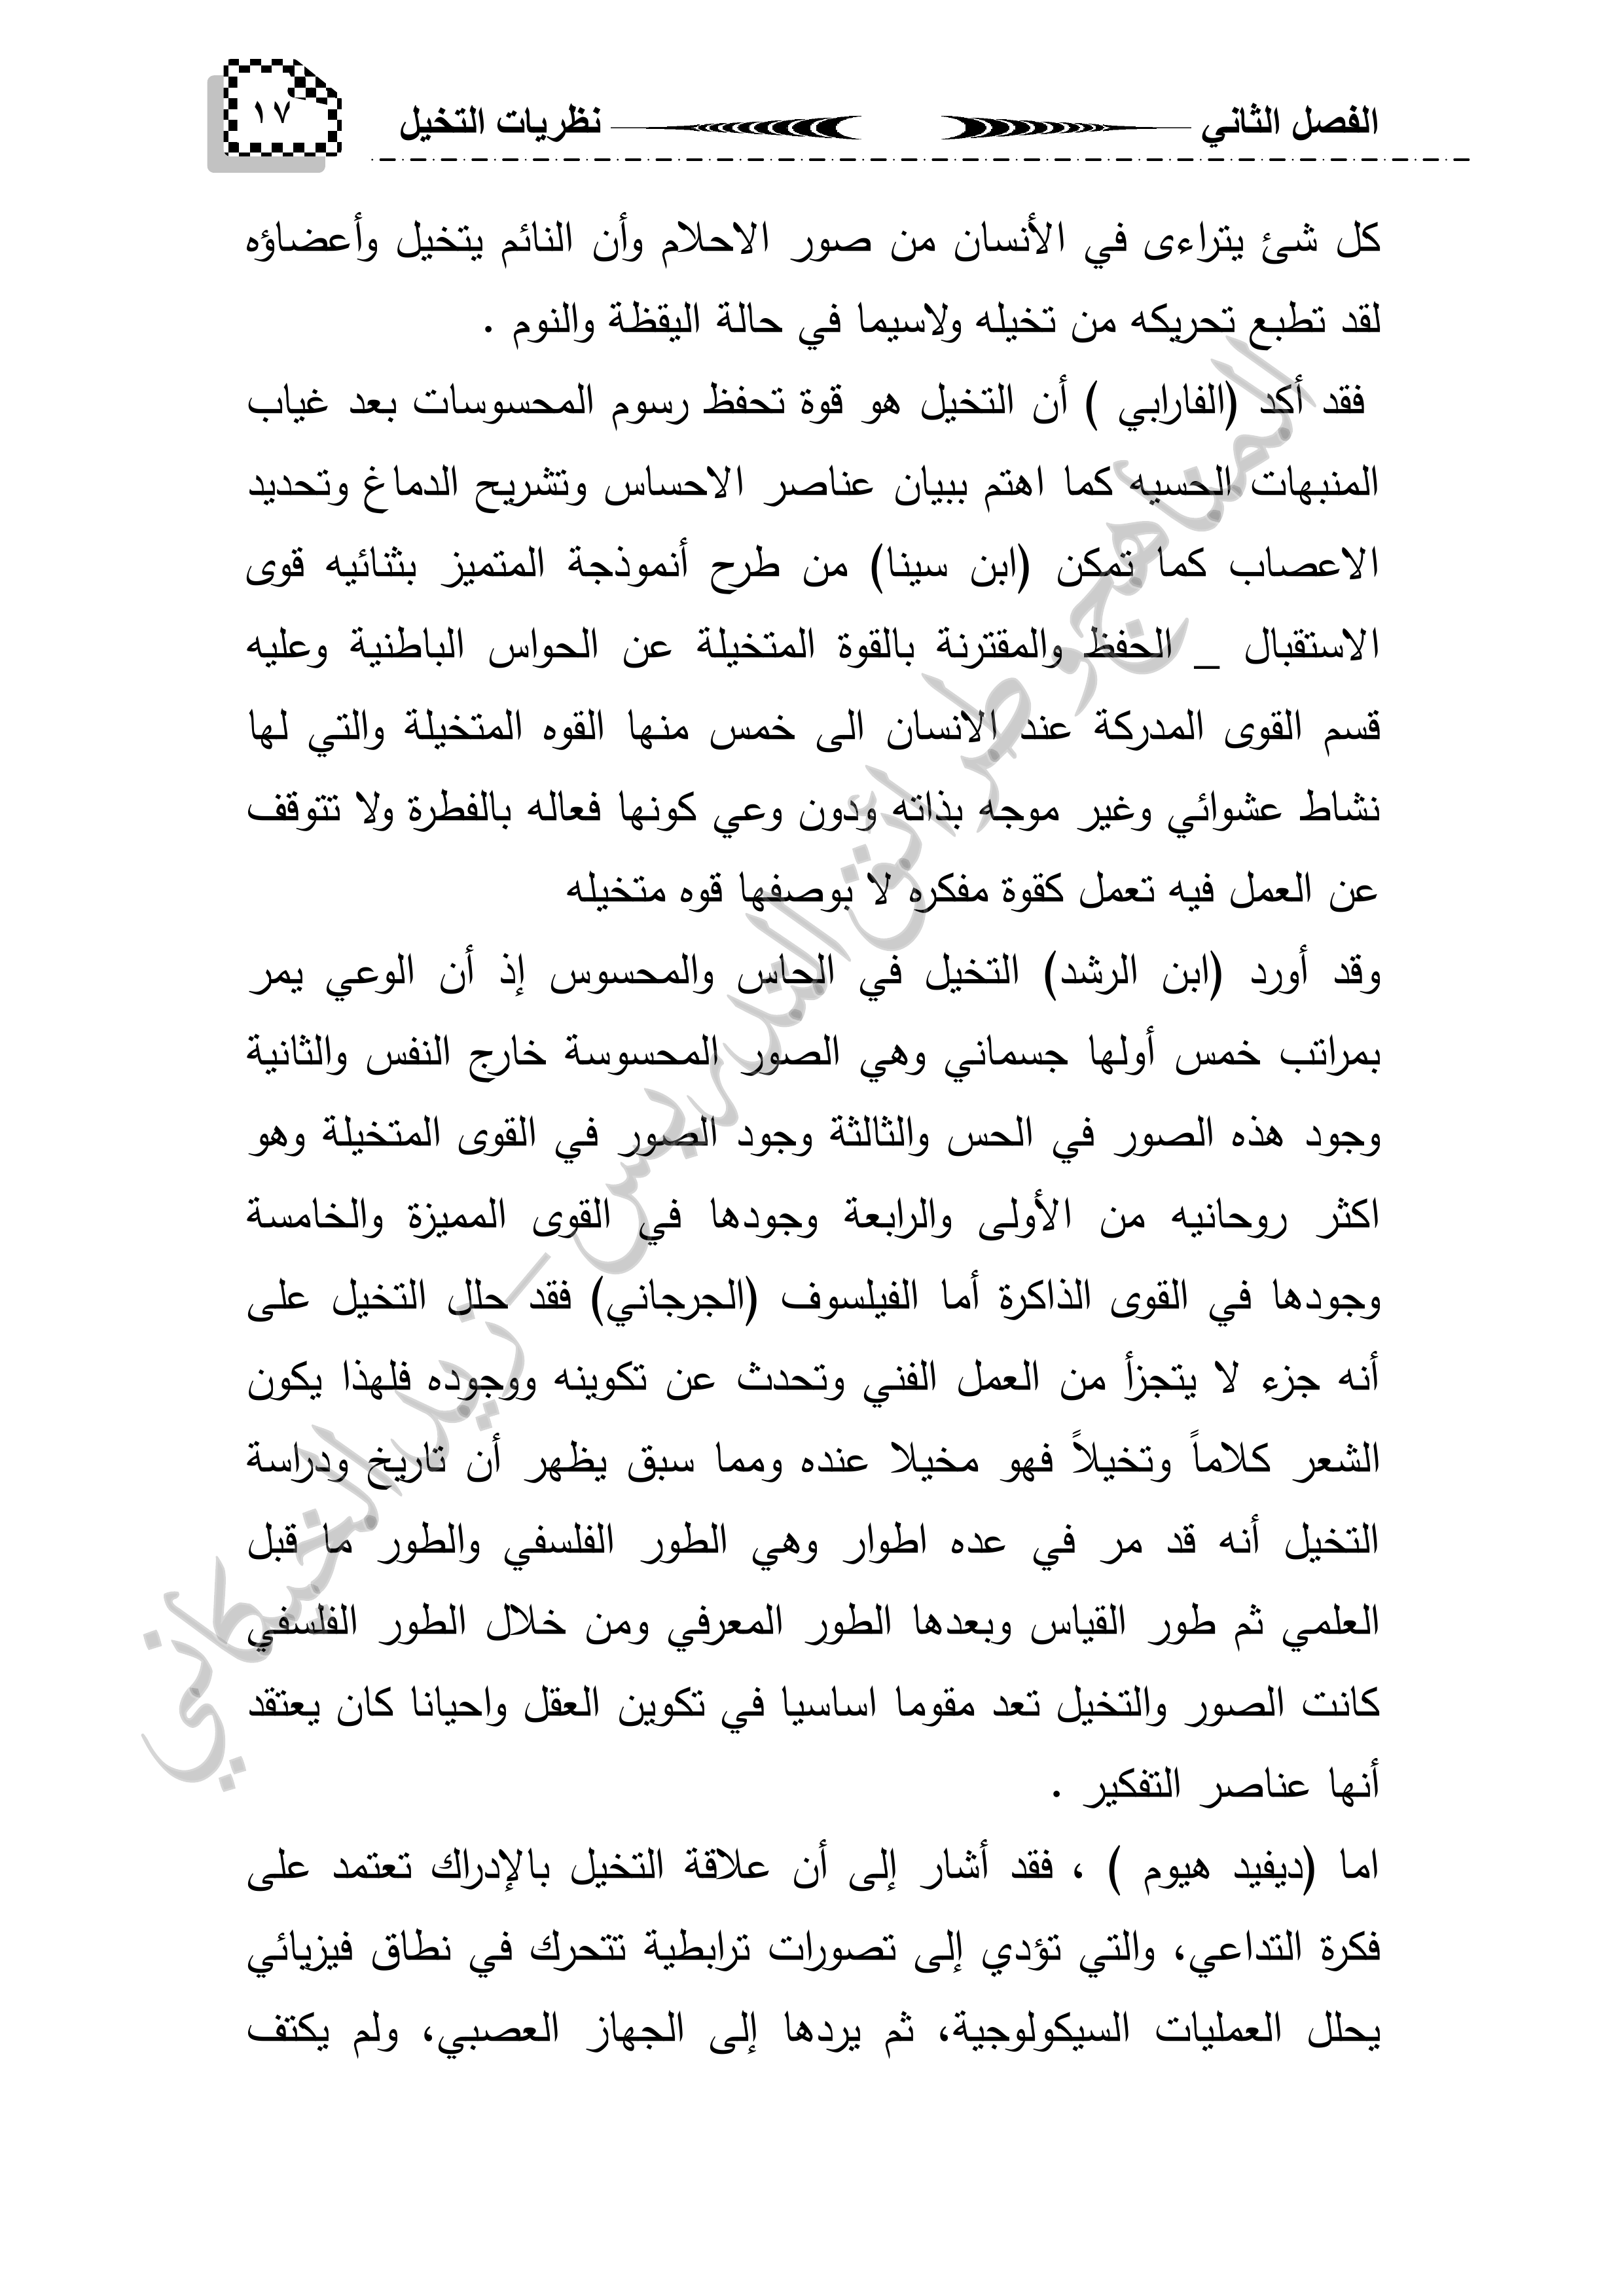 الفصل الثاني نظريات التخيل ١٧
كل شئ يتراءى في الأنسان من صور الاحلام وأن النائم يتخيل وأعضاؤه
لقد تطبع تحريكه من تخيله ولاسيما في حالة اليقظة والنوم .
فقد أكد (الفارابي ) أن التخيل هو قوة تحفظ رسوم المحسوسات بعد غياب
المنبهات الحسيه كما اهتم ببيان عناصر الاحساس وتشريح الدماغ وتحديد
الاعصاب كما تمكن (ابن سينا) من طرح أنموذجة المتميز بثنائيه قوى
الاستقبال _ الحفظ والمقترنة بالقوة المتخيلة عن الحواس الباطنية وعليه
قسم القوى المدركة عند الانسان الى خمس منها القوه المتخيلة والتي لها
نشاط عشوائي وغير موجه بذاته ودون وعي كونها فعاله بالفطرة ولا تتوقف
عن العمل فيه تعمل كقوة مفكره لا بوصفها قوه متخيله
وقد أورد (ابن الرشد) التخيل في الحاس والمحسوس إذ أن الوعي يمر
بمراتب خمس أولها جسماني وهي الصور المحسوسة خارج النفس والثانية
وجود هذه الصور في الحس والثالثة وجود الصور في القوى المتخيلة وهو
اكثر روحانيه من الأولى والرابعة وجودها في القوى المميزة والخامسة
وجودها في القوى الذاكرة أما الفيلسوف (الجرجاني) فقد حلل التخيل على
أنه جزء لا يتجزأ من العمل الفني وتحدث عن تكوينه ووجوده فلهذا يكون
الشعر كلاماً وتخيلاً فهو مخيلا عنده ومما سبق يظهر أن تاريخ ودراسة
التخيل أنه قد مر في عده اطوار وهي الطور الفلسفي والطور ما قبل
العلمي ثم طور القياس وبعدها الطور المعرفي ومن خلال الطور الفلسفي
كانت الصور والتخيل تعد مقوما اساسيا في تكوين العقل واحيانا كان يعتقد
أنها عناصر التفكير .
اما (ديفيد هيوم ) ، فقد أشار إلى أن علاقة التخيل بالإدراك تعتمد على
فكرة التداعي، والتي تؤدي إلى تصورات ترابطية تتحرك في نطاق فيزيائي
يحلل العمليات السيكولوجية، ثم يردها إلى الجهاز العصبي، ولم يكتف
المناهج وطرائق التدريس _ زيد الخيكاني